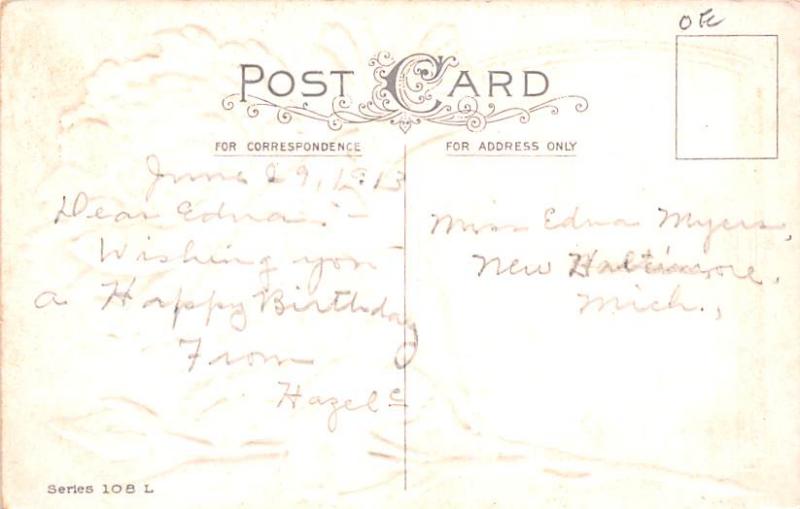 POST CARD
FOR CORRESPONDENCE
June 29, 1913
Dear Edna:-
Wishing you
a Happy Birthday
From
Hazel
FOR ADDRESS ONLY
Miss Edna Myers,
New Haltimore,
Mich.,
Series 108 L